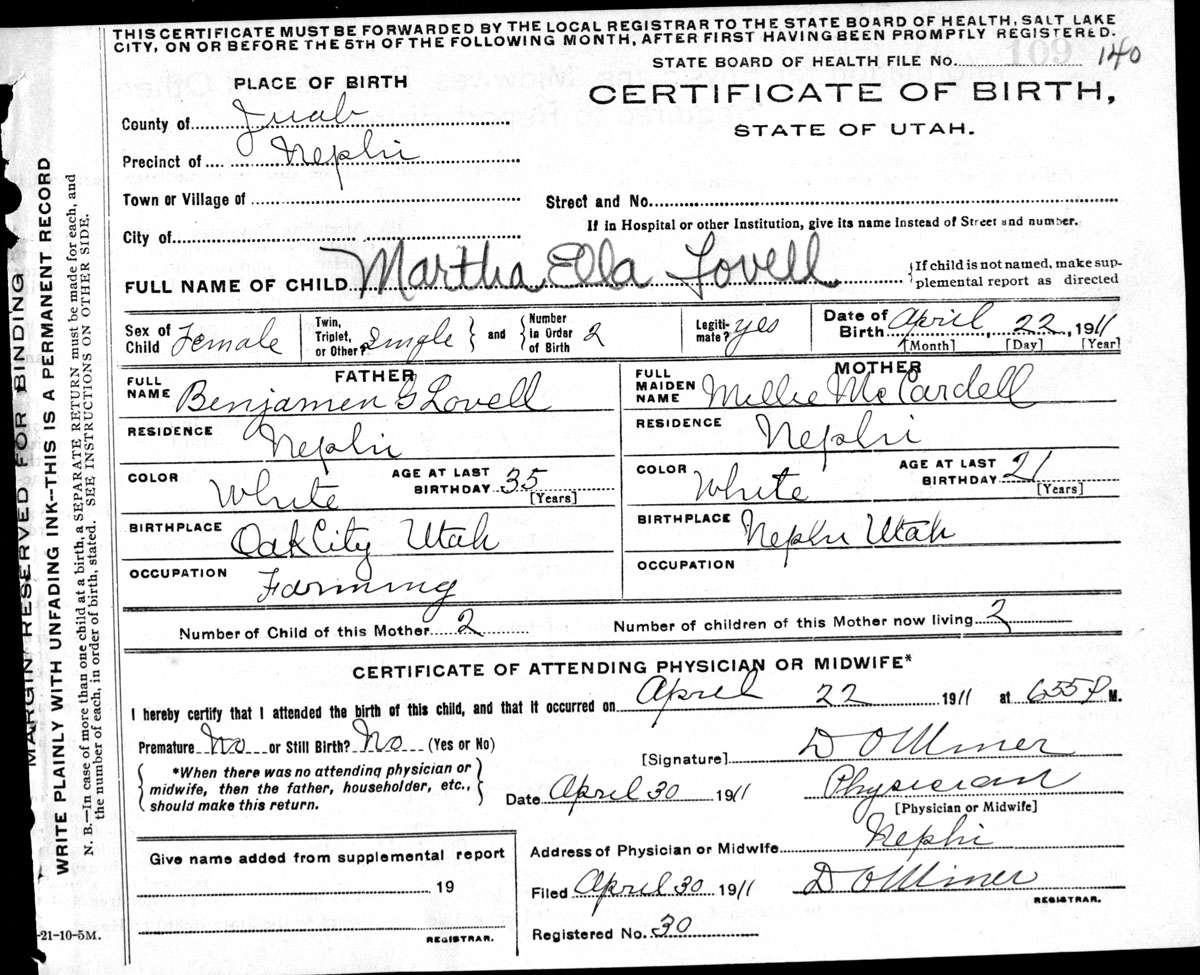 THIS CERTIFICATE MUST BE FORWARDED BY THE LOCAL REGISTRAR TO THE STATE BOARD OF HEALTH, SALT LAKE
CITY, ON OR BEFORE THE 5TH OF THE FOLLOWING MONTH, AFTER FIRST HAVING BEEN PROMPTLY REGISTERED.
STATE BOARD OF HEALTH FILE No. 109 140
PLACE OF BIRTH
CERTIFICATE OF BIRTH,
STATE OF UTAH.
County of Juab
Precinct of Nephi
Town or Village of
Street and No.
If in Hospital or other Institution, give its name instead of Street and number.
City of
FULL NAME OF CHILD Martha Ella Lovell
{If child is not named, make sup-
plemental report as directed
Sex of Child Female
Twin, Triplet, or Other? Single } and { Number in Order of Birth 2
Legiti-mate? yes
Date of Birth April, 22, 1911
[Month] [Day] [Year]
FATHER
MOTHER
FULL NAME Benjamen G Lovell
FULL MAIDEN NAME Millie McCardell
RESIDENCE Nephi
RESIDENCE Nephi
COLOR White AGE AT LAST BIRTHDAY 35 [Years]
COLOR White AGE AT LAST BIRTHDAY 21 [Years]
BIRTHPLACE Oak City Utah
BIRTHPLACE Nephi Utah
OCCUPATION Farming
OCCUPATION
Number of Child of this Mother 2
Number of children of this Mother now living 2
CERTIFICATE OF ATTENDING PHYSICIAN OR MIDWIFE*
I hereby certify that I attended the birth of this child, and that it occurred on April 22 1911 at 655 P M.
Premature No or Still Birth? No (Yes or No)
[Signature] D O Miner
{ *When there was no attending physician or
midwife, then the father, householder, etc.,
should make this return. }
Date April 30 1911 Physician
[Physician or Midwife]
Give name added from supplemental report
19
REGISTRAR.
Address of Physician or Midwife Nephi
Filed April 30 1911 D O Miner
REGISTRAR.
Registered No. 30
-21-10-5M.
MARGIN RESERVED FOR BINDING
WRITE PLAINLY WITH UNFADING INK--THIS IS A PERMANENT RECORD
N. B.—In case of more than one child at a birth, a SEPARATE RETURN must be made for each, and
the number of each, in order of birth, stated. SEE INSTRUCTIONS ON OTHER SIDE.